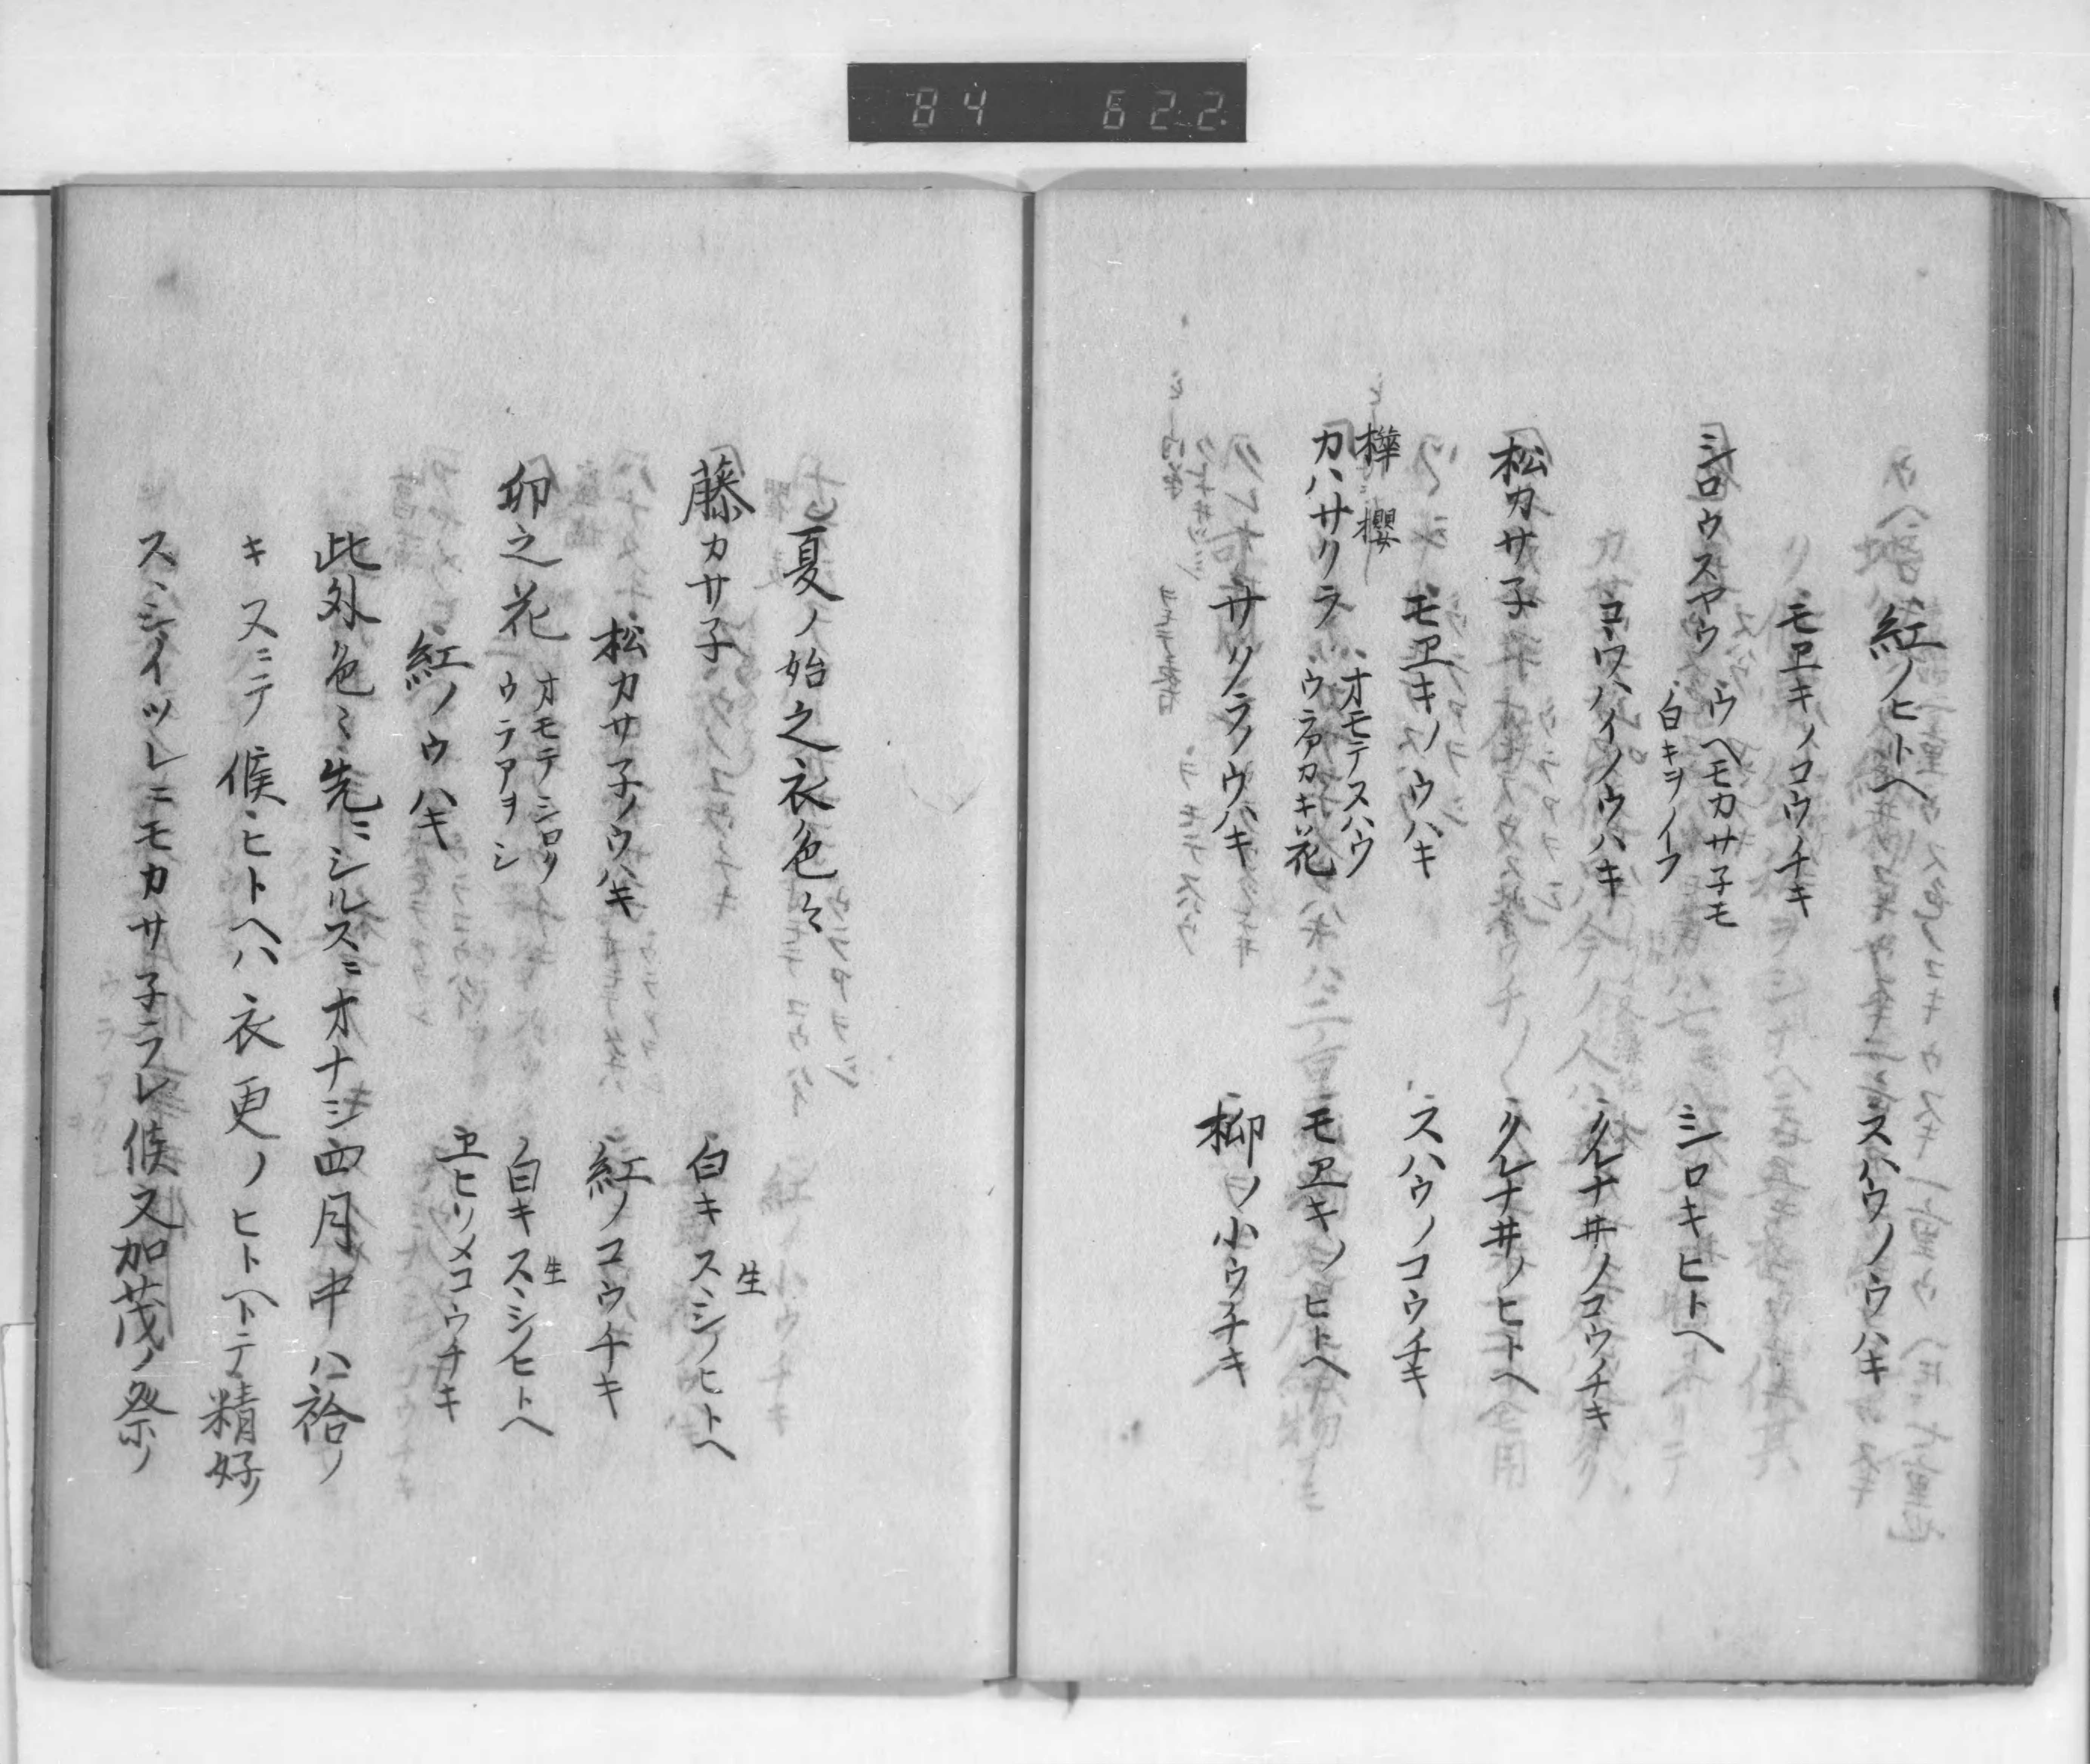 84 622
紅ノヒトヘ　スハウノウハキ
モヱキノコウノチキ
シロウスヤウ　ウヘモカサ子モ
白キヲノイフ　シロキヒトヘ
コウハイノウハキ　クレナ井ノコウノチキ
松カサ子　クレナ井ノヒトヘ
モヱキノウハキ　スハウノコウチキ
樺櫻
カハサクラ　オモテスハウ
ウラアカキ花　モヱキノヒトヘ
サクラノウハキ　柳ノ小ウチキ
夏ノ始之衣色々
藤カサ子　白キスヽシノヒトヘ
生
松カサ子ノウハキ　紅ノコウチキ
卯之花　オモテシロク
ウラアヲシ　白キスヽシノヒトヘ
生
紅ノウハキ　ヱヒソメコウチキ
此外色ミ先ニシルスニオナシ四月中ハ袷ノ
キヌニテ候ヒトヘハ衣更ノヒトヘトテ精好ノ
スヽシイツレニモカサ子ラレ候又加茂ノ祭ノ